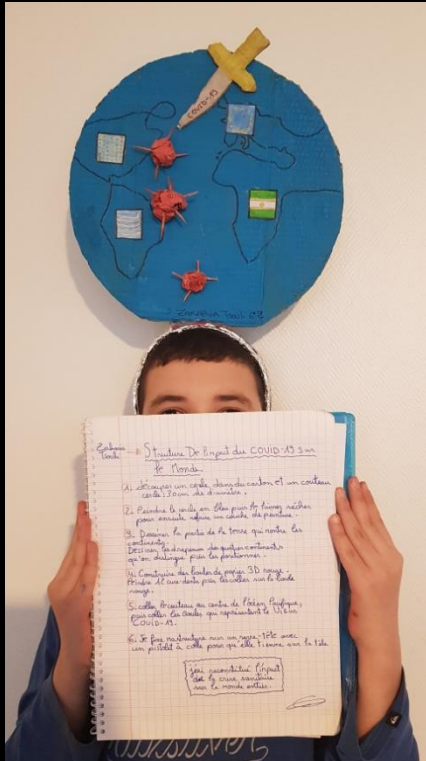 COVID-19
Zouloua
Structure De l'Impact du COVID-19 sur
le Monde.
1. découper un cercle, dans du carton, et un couteau
cercle: 30 cm de diamètre.
2. Peindre le cercle en bleu puis le laissez sécher
pour ensuite refaire un couche de peinture.
3. Dessiner la partie de la terre qui montre les
continents.
Dessiner les drapeaux des quatres continents
qu'on distingue puis les positionner.
4. Construire des boules de papier 3D rouge.
Peindre 12 cure dents puis les coller sur la boule
rouge.
5. coller le couteau au centre de l'océan Pacifique,
puis coller les boules qui représentent le Virus
COVID-19.
6. Je fixe ma structure sur un serre-tête avec
un pistolet à colle pour qu'elle tienne sur la tête
j'ai reconstitué l'impact
de la crise sanitaire
sur le monde entier.
Quiksilver